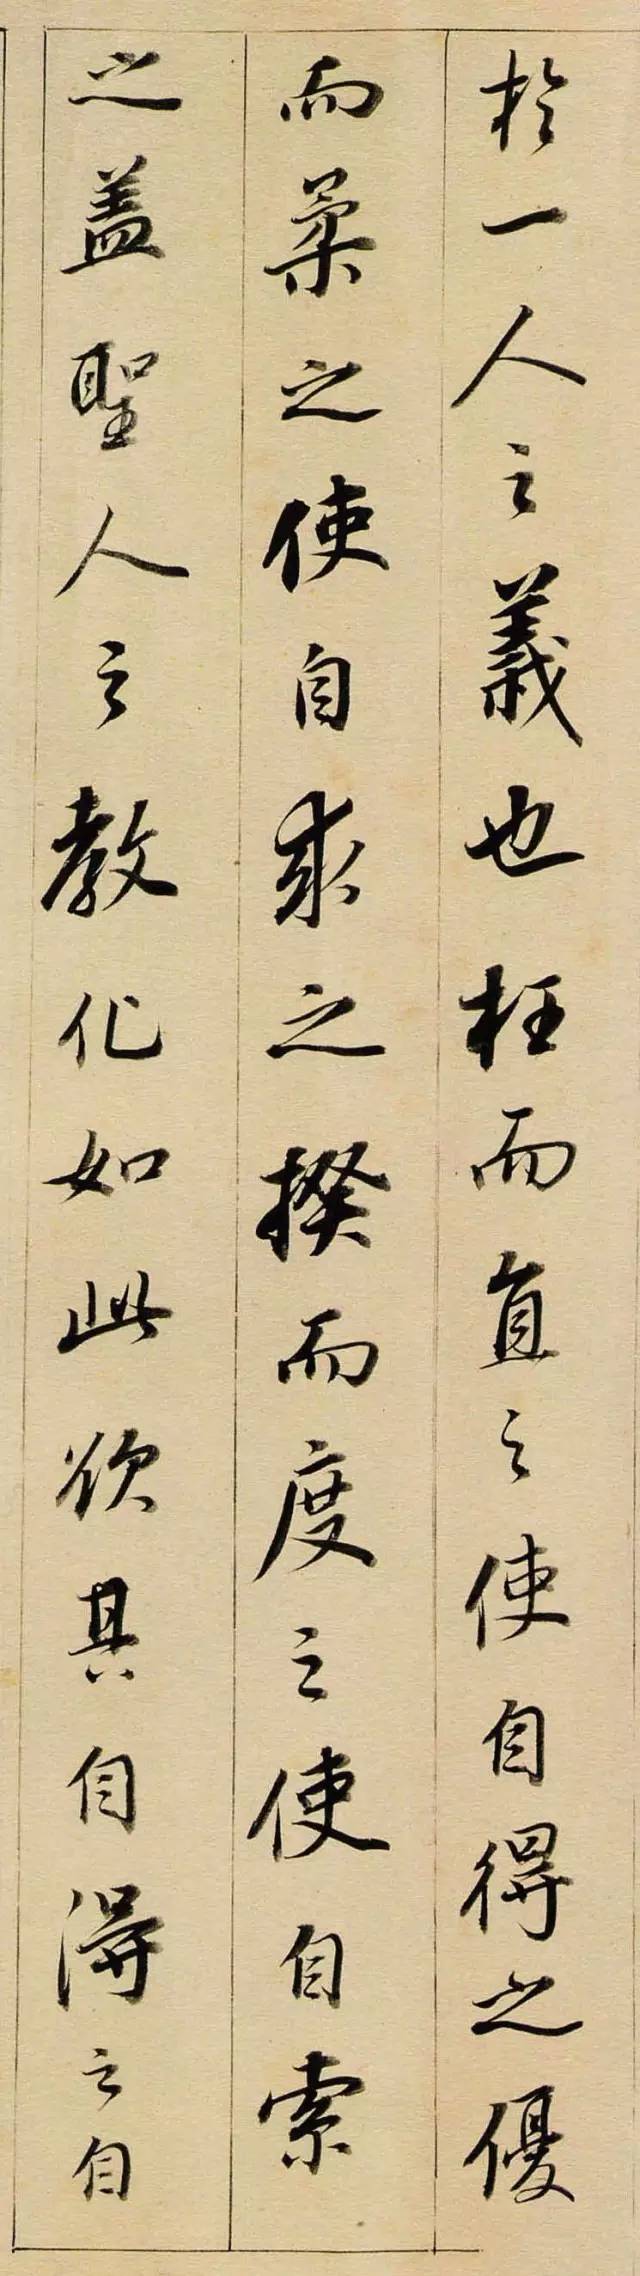 於一人之義也枉而直之使自得之優
而柔之使自求之揆而度之使自索
之盖聖人之教化如此欲其自得之自